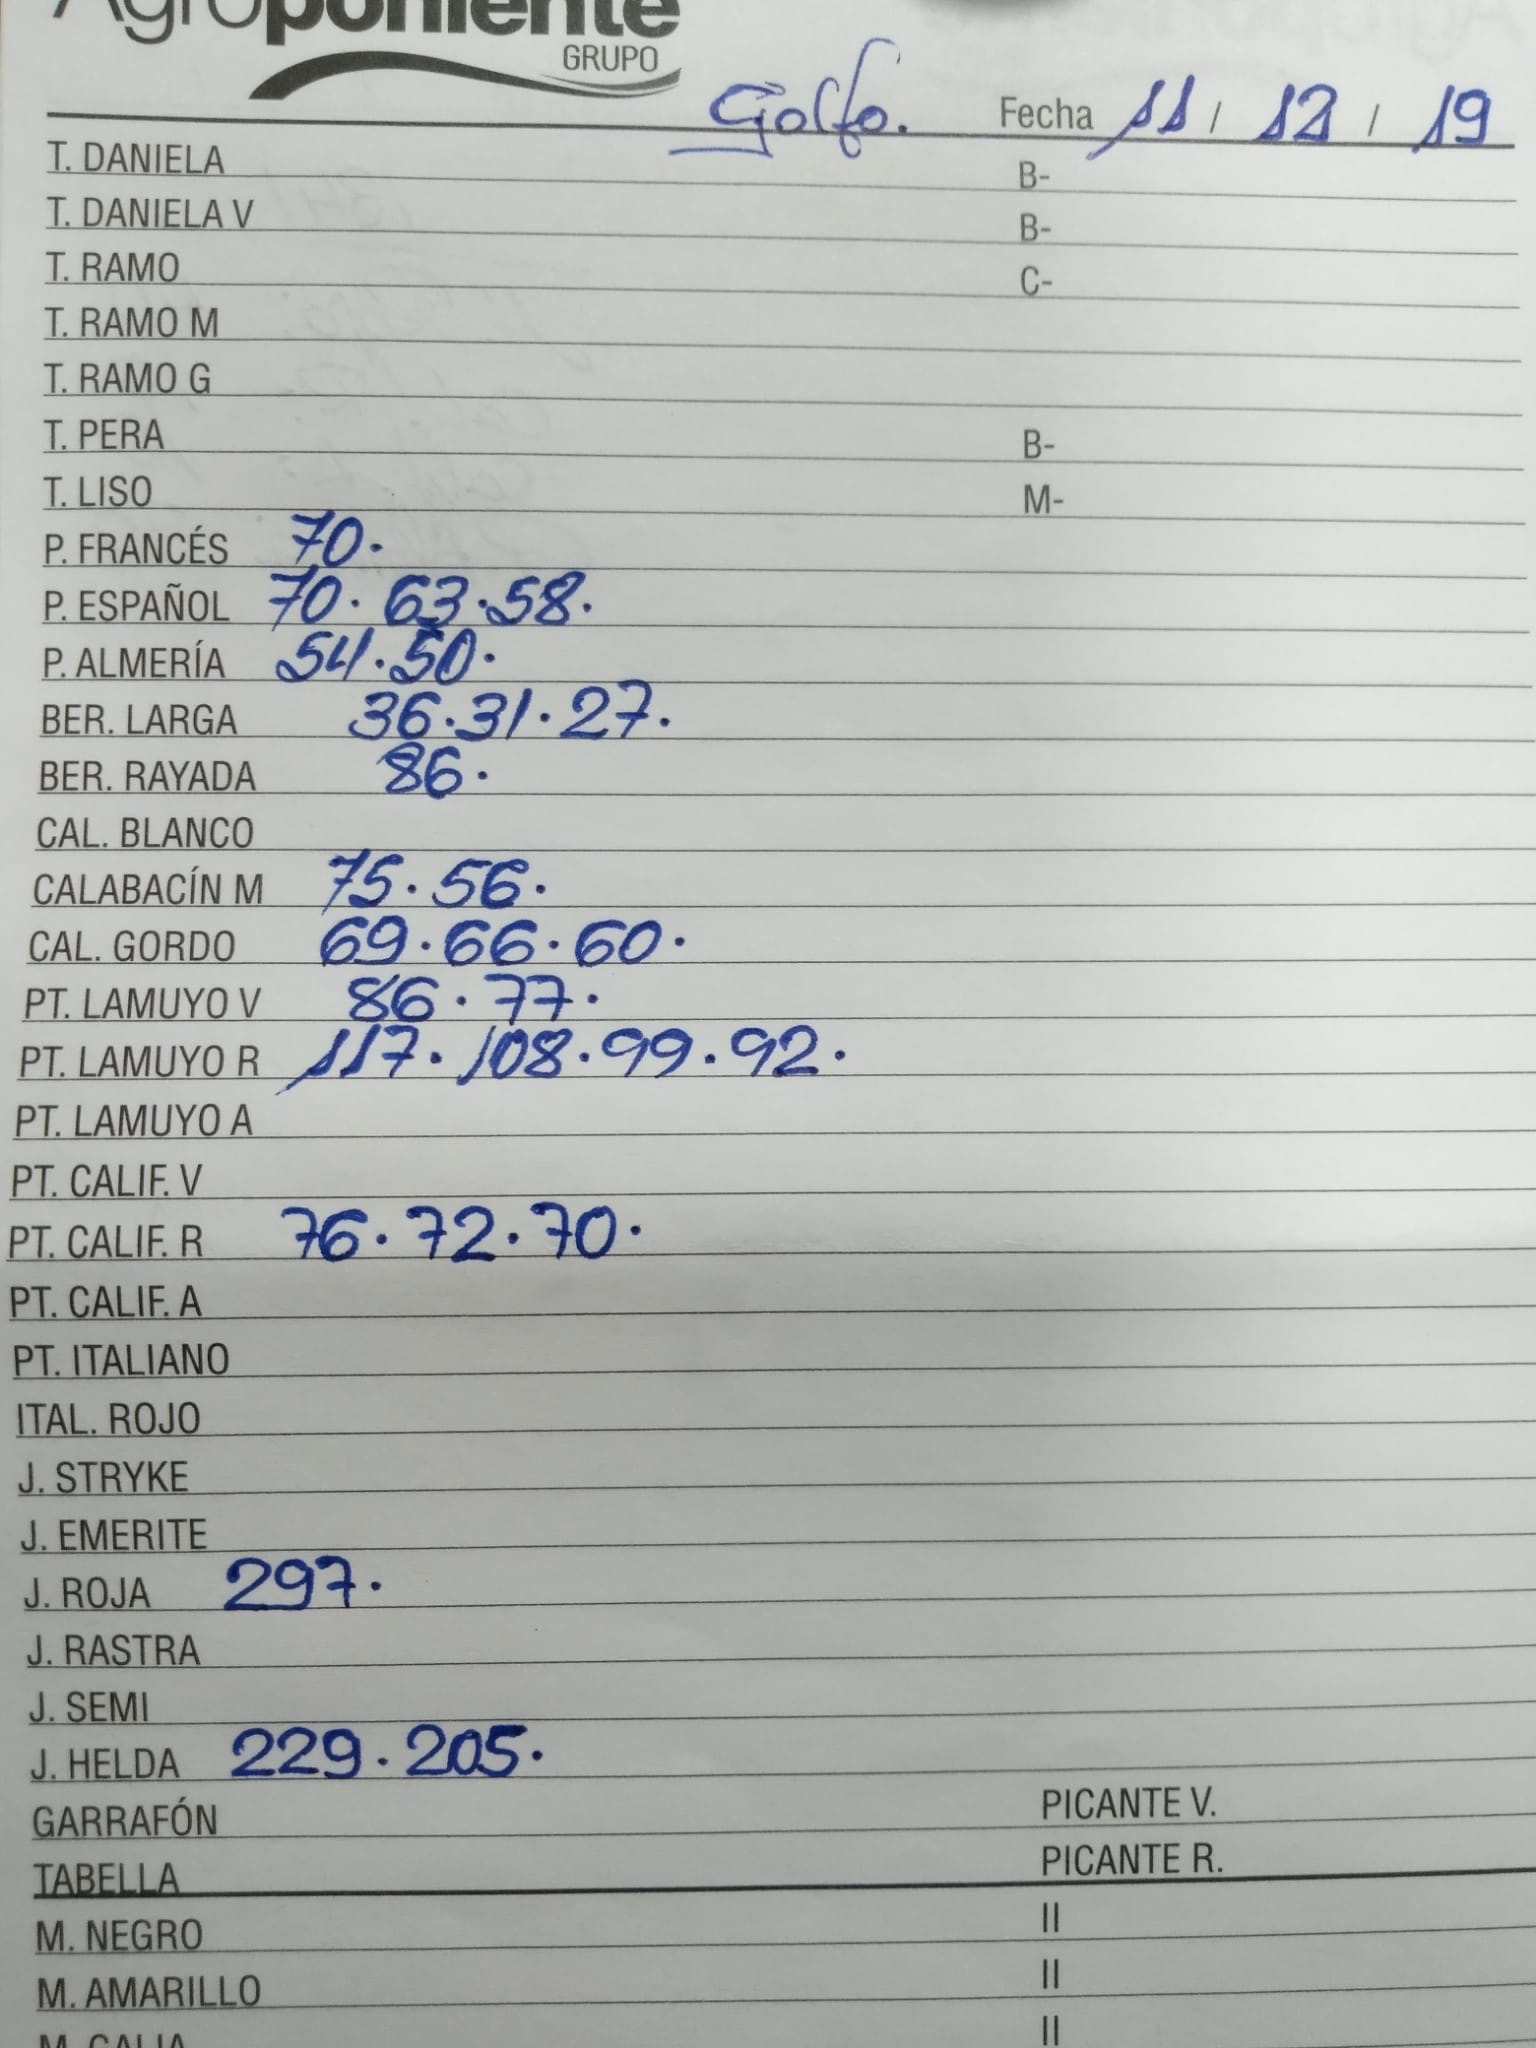 Agroponiente
GRUPO
Golfo. Fecha 11 / 12 / 19
T. DANIELA B-
T. DANIELA V B-
T. RAMO C-
T. RAMO M
T. RAMO G
T. PERA B-
T. LISO M-
P. FRANCÉS 70.
P. ESPAÑOL 70. 63.58.
P. ALMERÍA 54.50.
BER. LARGA 36.31.27.
BER. RAYADA 86.
CAL. BLANCO
CALABACÍN M 75.56.
CAL. GORDO 69.66.60.
PT. LAMUYO V 86.77.
PT. LAMUYO R 117.108.99.92.
PT. LAMUYO A
PT. CALIF. V
PT. CALIF. R 76.72.70.
PT. CALIF. A
PT. ITALIANO
ITAL. ROJO
J. STRYKE
J. EMERITE
J. ROJA 297.
J. RASTRA
J. SEMI
J. HELDA 229.205.
GARRAFÓN PICANTE V.
TABELLA PICANTE R.
M. NEGRO II
M. AMARILLO II
M. GALIA II